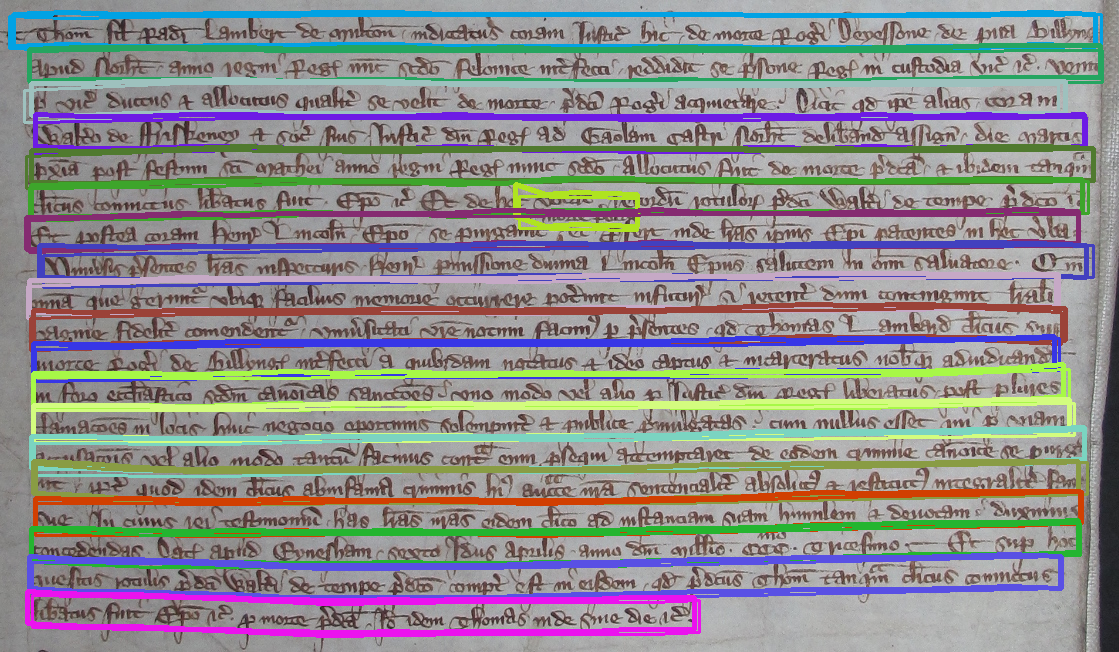 Thom fil Radi Lambert de multon indictatus coram Justic hic de morte Rogi Depessone de pva Billyng
apud Norht anno regni Reg nunc scdo felonice interfecti reddidit se prisone Reg in custodia vic ic venit
p vic ductus & allocutus qualit se velit de morte pdci Rogi acquietare Dicit qd ipe alias coram
Walto de Friskeney & soc suis Justic dni Reg ad Gaolam castri Norht deliband assign die martis
pxia post festum sci Mathei anno regni Reg nunc scdo allocutus fuit de morte pdca & ibidem tanqm
clicus convictus libatus fuit Epo ic Et de hoc vocat recordu rotulor pdci Walti de tempe pdco ic
Et postea coram Henr Lincoln Epo se purgavit pfert inde lras ipius Epi patentes in hec vba
Univsis psentes lras inspecturis Henr pmissione divina Lincoln Epus salutem in omi salvatore Om
que geruntr ubiq facilius memorie occurrere potunt in futur si retent dum contingunt lrali
pagine fidelit comendentr univsitati vre notum facim p psentes qd Thomas Lambard clicus sup
morte Rogi de Billyng intfecti a quibdam notatus & ideo captus & incarceratus nobq adiudicand
in foro ecclastico scdm canoicas sancciones uno modo vel alio p Justic dni Reg liberatus post plures
clamacoes in locis huic negocio oportunis solempnit & publice pmulgatas cum nullus esset qui p viam
accusacois vel alio modo tantu facinus cont eum psequi attemptaret de eodem crimine canonice se purga
vit ipe quod idem clicus ab infamia criminis hi aucte nra sentencialit absolut & restitut integralit fam
sue In cuius rei testimoniu has lras nras eidem clico ad instanciam suam humilem & devotam duximus
concedendas Dat apud Eynesham sexto Idus Aprilis anno dni millio ccc mo tricesimo Et sup hoc
inspectis rotulis pdci Walti de tempe pdco compt est in eisdem qd pdcus Thom tanqm clicus convictus
libatus fuit Epo ic p morte pdca Io idem Thomas inde sine die ic